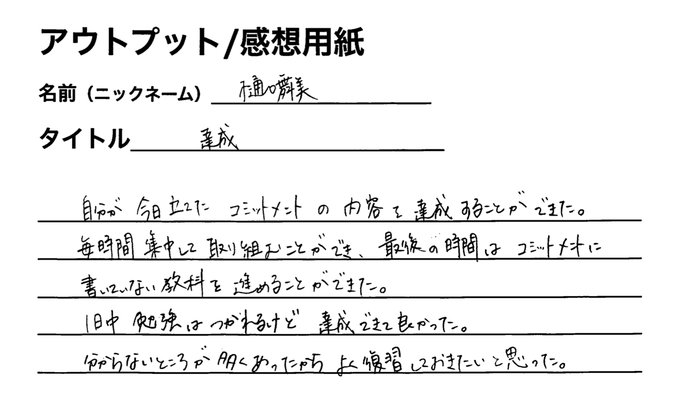 アウトプット/感想用紙
名前（ニックネーム） 樋口舞美
タイトル 達成
自分が今日立てたコミットメントの内容を達成することができた。
毎時間集中して取り組むことができ、最後の時間はコミットメントに
書いていない教科を進めることができた。
1日中勉強はつかれるけど達成できて良かった。
分からないところが多くあったからよく復習しておきたいと思った。